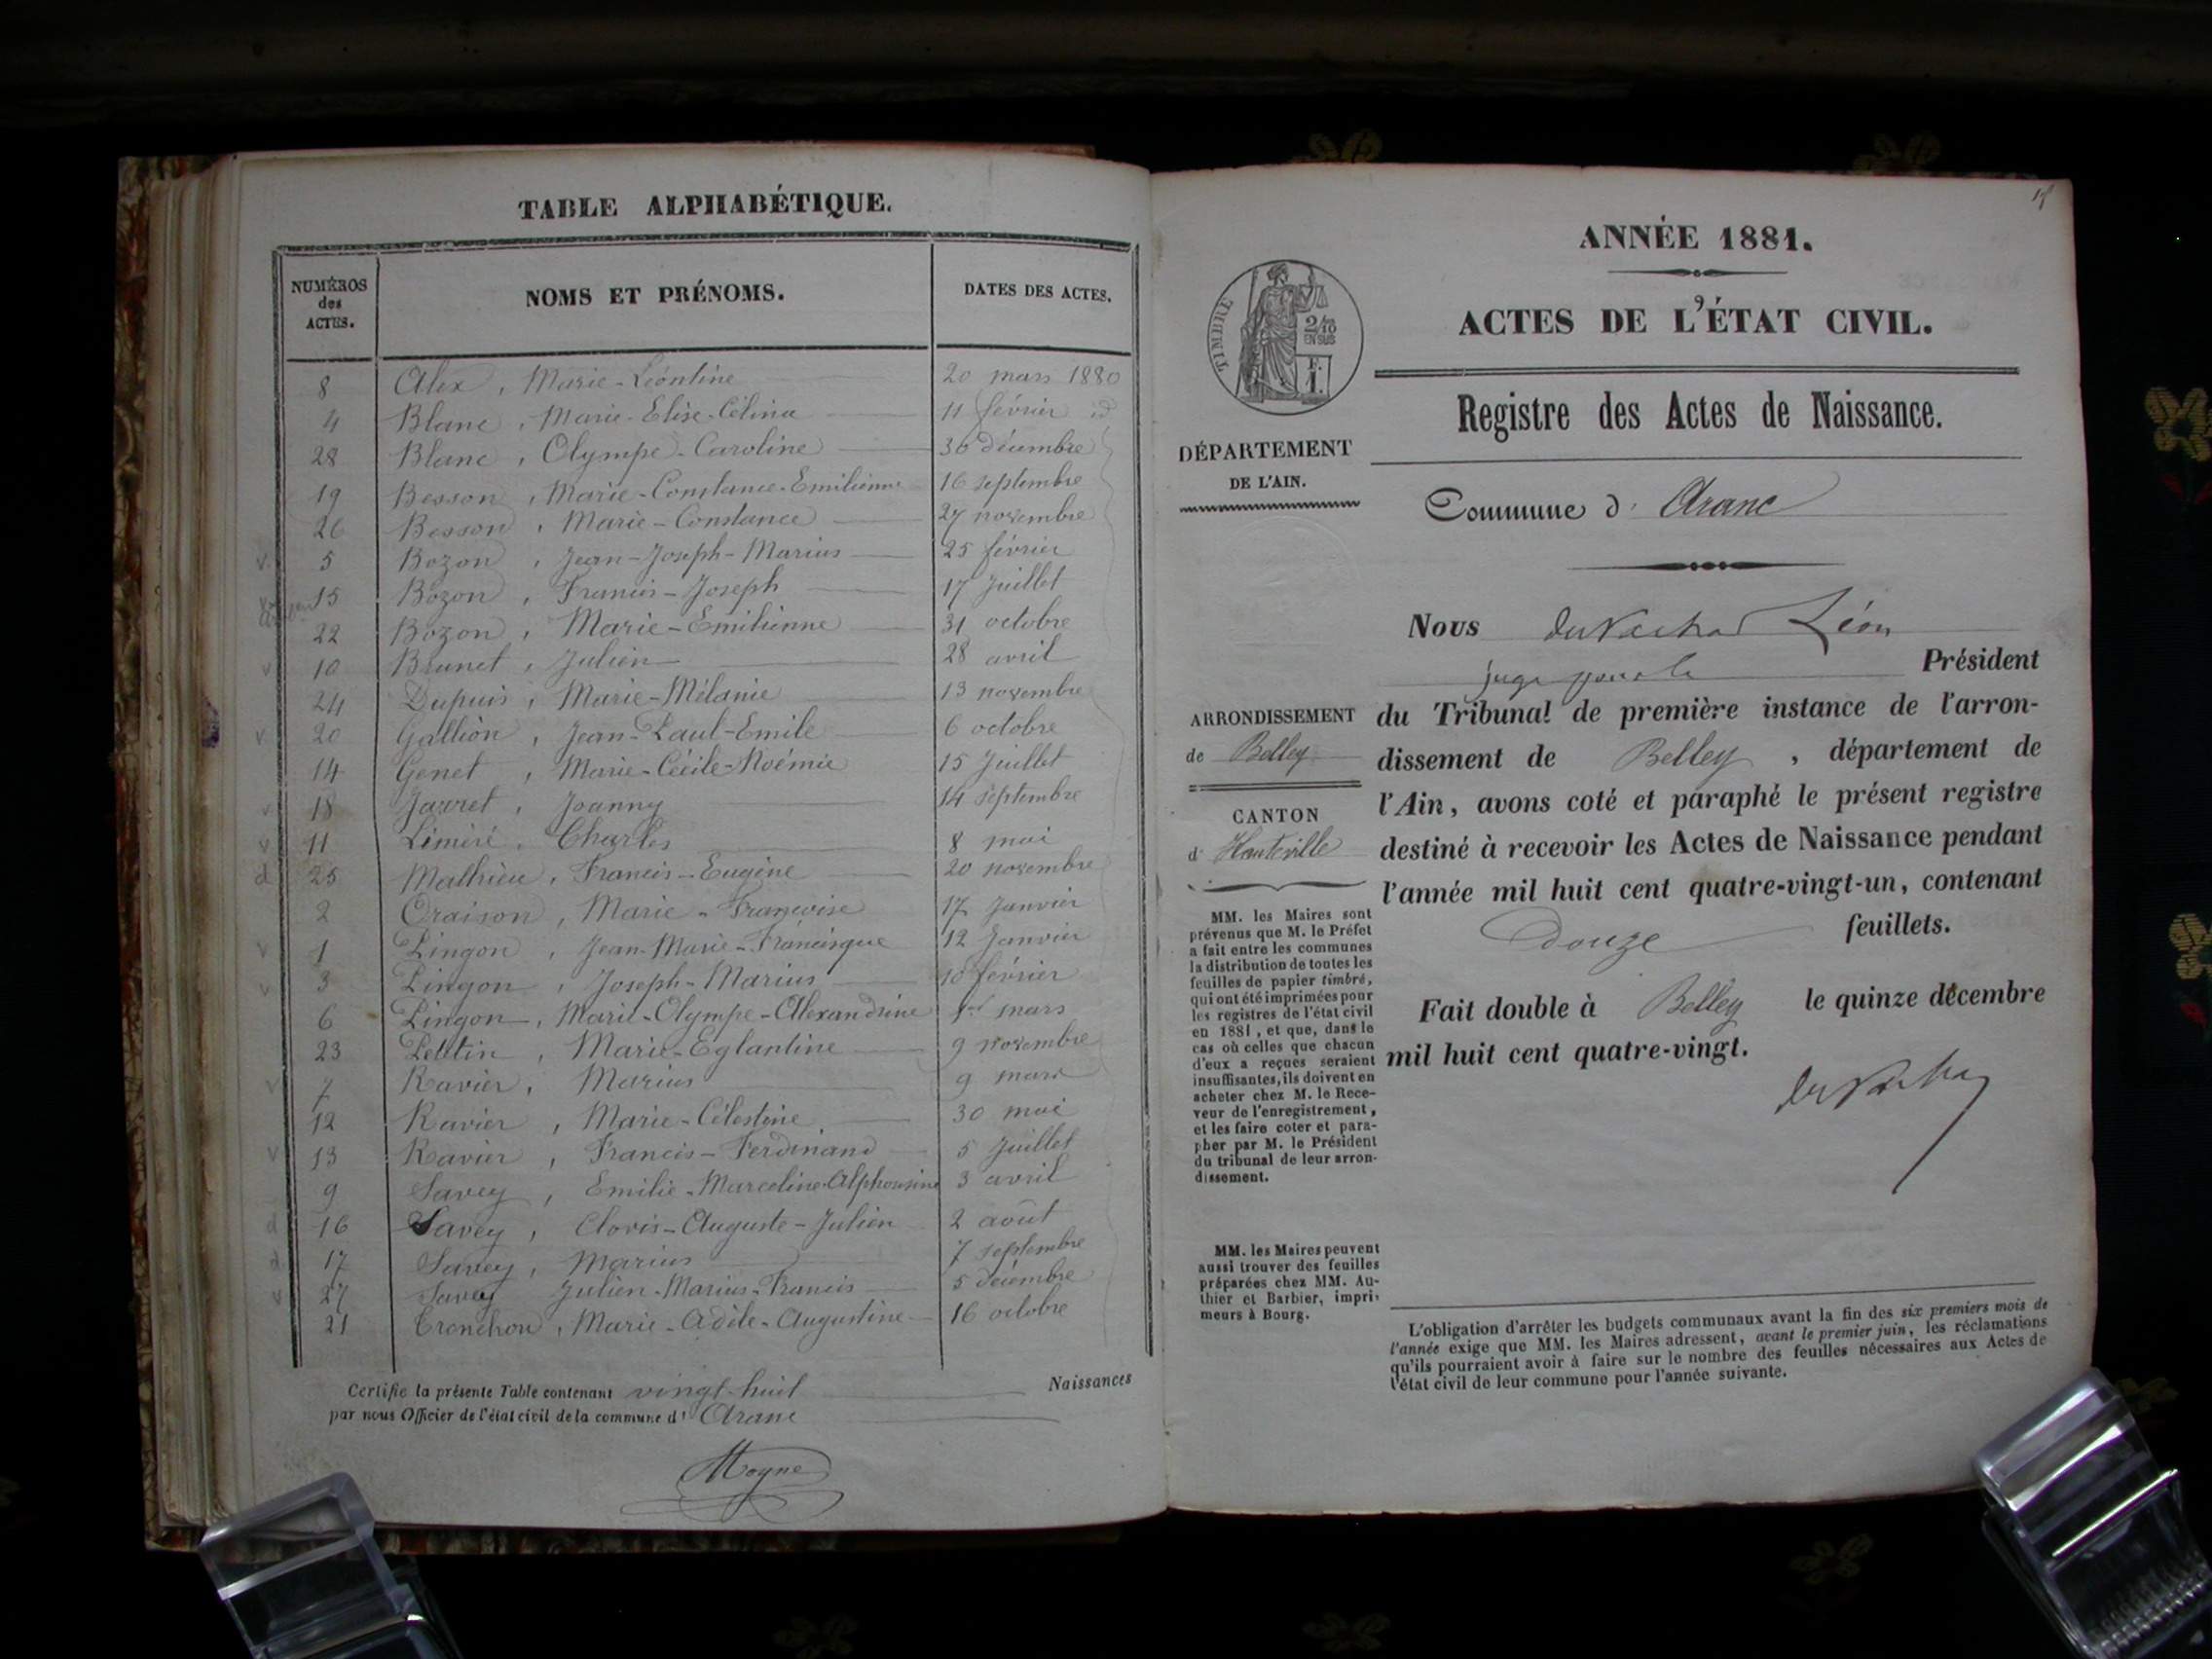 TABLE ALPHABÉTIQUE.
NUMÉROS des ACTES.
NOMS ET PRÉNOMS.
DATES DES ACTES.
8 Alex, Marie-Léontine 20 mars 1880
4 Blanc, Marie-Elise-Célina 11 février id
28 Blanc, Olympe-Caroline 30 décembre
19 Besson, Marie-Constance-Emilienne 16 septembre
26 Besson, Marie-Constance 27 novembre
v 5 Bozon, Jean-Joseph-Marius 25 février
15 Bozon, Francis-Joseph 17 Juillet
22 Bozon, Marie-Emilienne 31 octobre
v 10 Brunet, Julien 28 avril
24 Dupuis, Marie-Mélanie 13 novembre
v 20 Gallion, Jean-Paul-Emile 6 octobre
14 Genet, Marie-Cécile-Noémie 15 Juillet
v 18 Jarret, Joanny 14 septembre
v 11 Liméré, Charles 8 mai
d 25 Mathieu, Francis-Eugène 20 novembre
2 Oraison, Marie-Françoise 17 Janvier
v 1 Pingon, Jean-Marie-Francisque 12 Janvier
v 3 Pingon, Joseph-Marius 10 février
6 Pingon, Marie-Olympe-Alexandrine 1er mars
23 Petetin, Marie-Eglantine 9 novembre
v 7 Ravier, Marius 9 mars
12 Ravier, Marie-Célestine 30 mai
v 13 Ravier, Francis-Ferdinand 5 Juillet
9 Savey, Emilie-Marceline-Alphonsine 3 avril
d 16 Savey, Clovis-Auguste-Julien 2 août
d 17 Savey, Marius 7 septembre
v 27 Savey Julien-Marius-Francis 5 décembre
21 Tronchon, Marie-Adèle-Augustine 16 octobre
Certifié la présente Table contenant vingt-huit Naissances
par nous Officier de l'état civil de la commune d' Aranc
Moyne
ANNÉE 1881.
ACTES DE L'ÉTAT CIVIL.
TIMBRE
2/10
EN SUS
F.
1.
Registre des Actes de Naissance.
DÉPARTEMENT
DE L'AIN.
Commune d' Aranc
Nous Léon
juge pour le Président
ARRONDISSEMENT
de Belley
CANTON
d' Hauteville
du Tribunal de première instance de l'arron-
dissement de Belley, département de
l'Ain, avons coté et paraphé le présent registre
destiné à recevoir les Actes de Naissance pendant
l'année mil huit cent quatre-vingt-un, contenant
douze feuillets.
Fait double à Belley le quinze décembre
mil huit cent quatre-vingt.
MM. les Maires sont
prévenus que M. le Préfet
a fait entre les communes
la distribution de toutes les
feuilles de papier timbré,
qui ont été imprimées pour
les registres de l'état civil
en 1881, et que, dans le
cas où celles que chacun
d'eux a reçues seraient
insuffisantes, ils doivent en
acheter chez M. le Rece-
veur de l'enregistrement,
et les faire coter et para-
pher par M. le Président
du tribunal de leur arron-
dissement.
MM. les Maires peuvent
aussi trouver des feuilles
préparées chez MM. Au-
thier et Barbier, impri-
meurs à Bourg.
L'obligation d'arrêter les budgets communaux avant la fin des six premiers mois de
l'année exige que MM. les Maires adressent, avant le premier juin, les réclamations
qu'ils pourraient avoir à faire sur le nombre des feuilles nécessaires aux Actes de
l'état civil de leur commune pour l'année suivante.